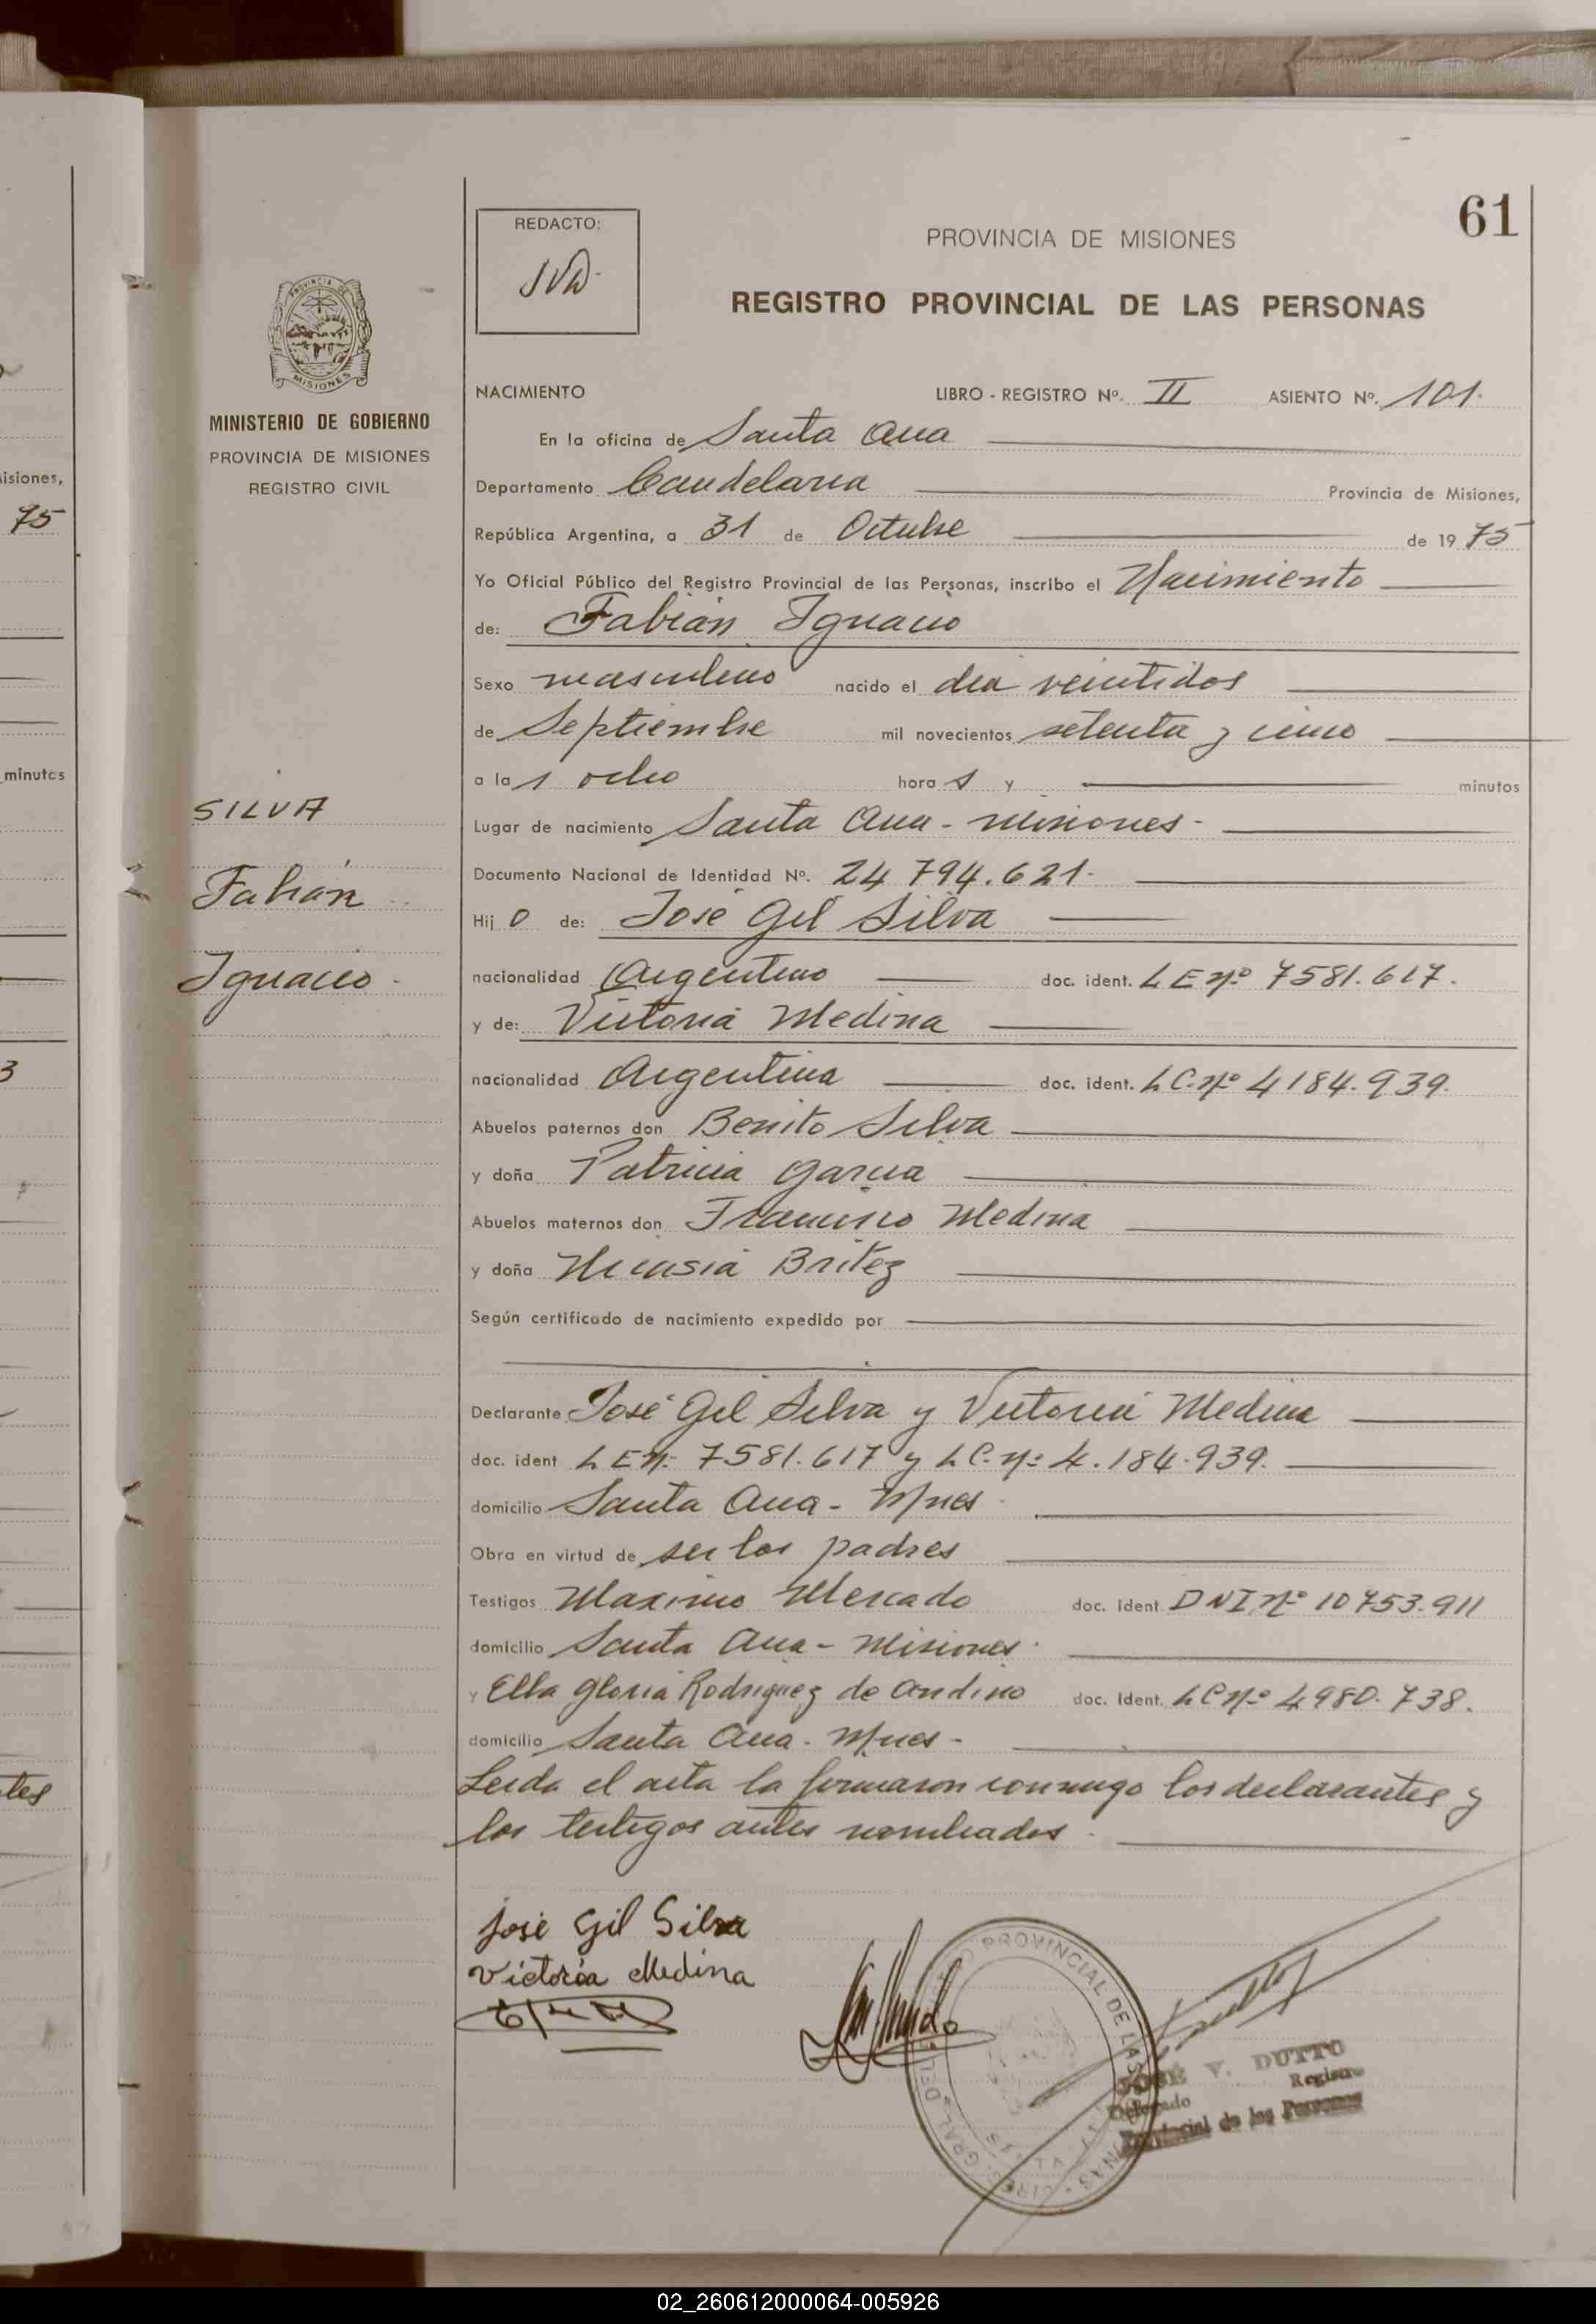 61
REDACTO:
PROVINCIA DE MISIONES
REGISTRO PROVINCIAL DE LAS PERSONAS
PROVINCIA DE
MISIONES
MINISTERIO DE GOBIERNO
PROVINCIA DE MISIONES
REGISTRO CIVIL
isiones,
75
minutos
3
tes
NACIMIENTO LIBRO - REGISTRO Nº. II ASIENTO Nº. 101.
En la oficina de Santa Ana
Departamento Candelaria Provincia de Misiones,
República Argentina, a 31 de Octubre de 1975
Yo Oficial Público del Registro Provincial de las Personas, inscribo el Nacimiento
de: Fabián Ignacio
Sexo masculino nacido el día veintidos
de Septiembre mil novecientos setenta y cinco
a las ocho horas y minutos
SILVA
Fabián
Ignacio.
Lugar de nacimiento Santa Ana - Misiones -
Documento Nacional de Identidad Nº. 24 794.621.
Hijo de: José Gil Silva
nacionalidad Argentino doc. ident. L E Nº 7581.617.
y de: Victoria Medina
nacionalidad Argentina doc. ident. L C. Nº 4184.939.
Abuelos paternos don Benito Silva
y doña Patricia Garcia
Abuelos maternos don Francisco Medina
y doña Nicasia Britez
Según certificado de nacimiento expedido por
Declarante José Gil Silva y Victoria Medina
doc. ident L E N: 7581.617 y L C. Nº 4.184.939.
domicilio Santa Ana - Mnes.
Obra en virtud de ser los padres
Testigos Maximo Mercado doc. Ident DNI Nº 10753.911
domicilio Santa Ana - Misiones.
y Elba Gloria Rodriguez de Andino doc. Ident. L C Nº 4980.738.
domicilio Santa Ana - Mnes -
Leida el acta la firmaron conmigo los declarantes y
los testigos antes nombrados.
José Gil Silva
Victoria Medina
PROVINCIAL DE LAS
JOSE V. DUTTO
Delegado Registro
Provincial de las Personas
02_260612000064-005926